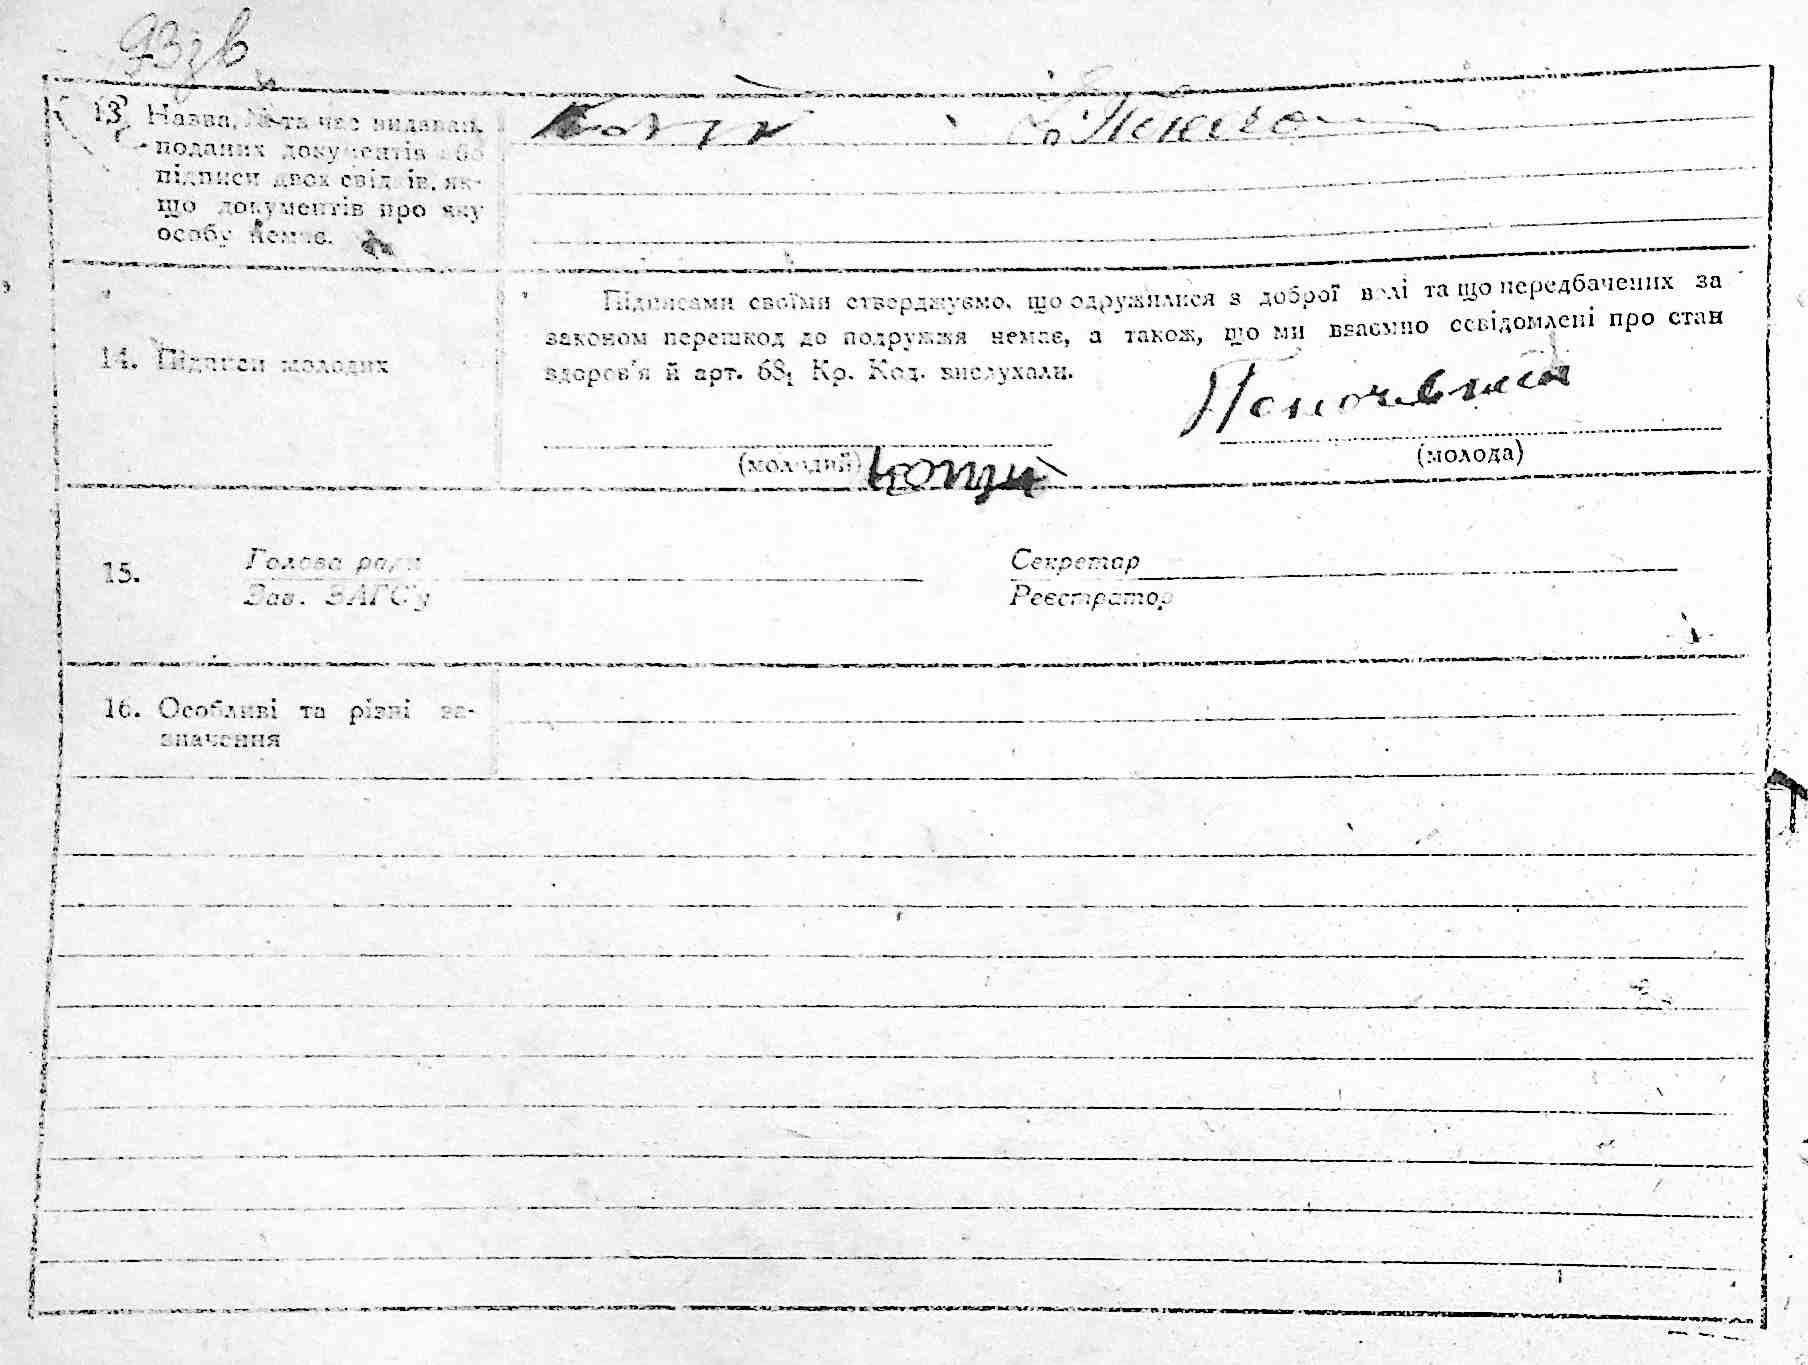 93зв
13. Назва, № та час видаван.
поданих документів або
підписи двох свідків, як-
що документів про яку
особу немає.
14. Підписи молодих
Підписами своїми стверджуємо, що одружилися з доброї волі та що передбачених за
законом перешкод до подружжя немає, а також, що ми взаємно освідомлені про стан
здоров'я й арт. 68₁ Кр. Код. вислухали.
(молодий)
(молода)
15. Голова ради
Зав. ЗАГС'у
Секретар
Реєстратор
16. Особливі та різні за-
значення